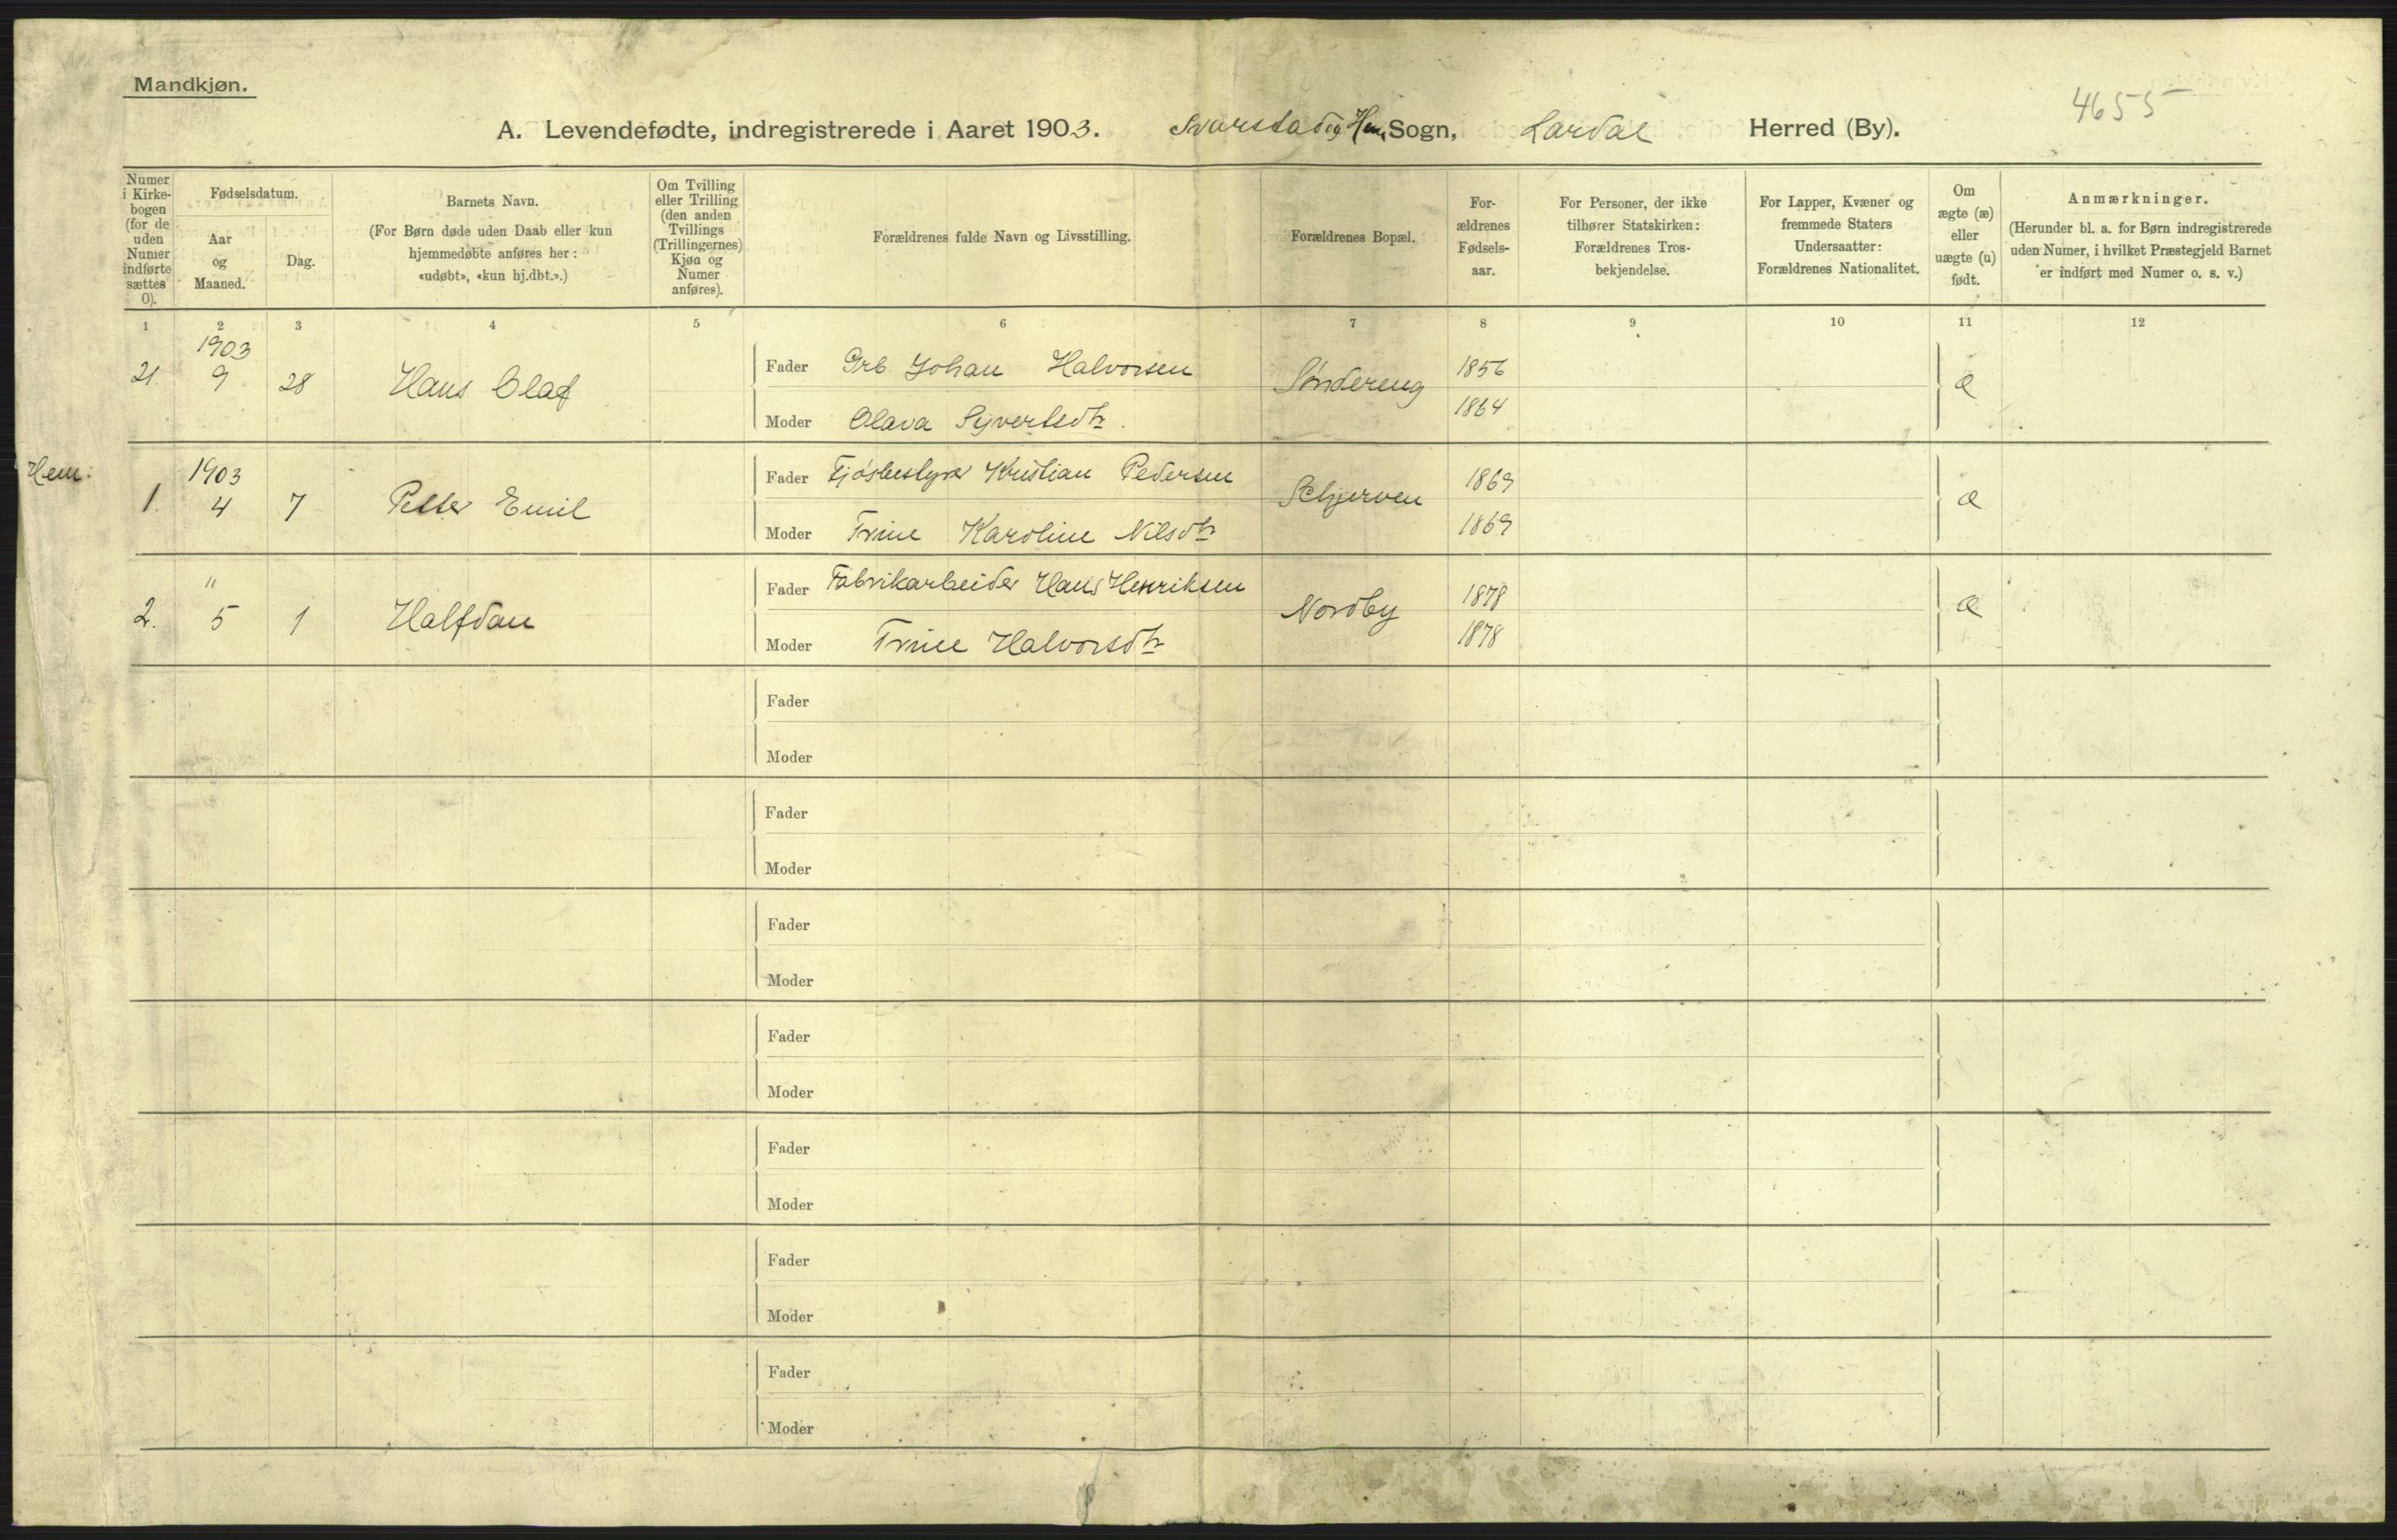 Mandkjøn.
4655
A. Levendefødte, indregistrerede i Aaret 1903. Svarstad og Hem Sogn, Lardal Herred (By).
Numer i Kirke-bogen (for de uden Numer indførte sættes 0).
Fødselsdatum.
Aar og Maaned.
Dag.
Barnets Navn.
(For Børn døde uden Daab eller kun hjemmedøbte anføres her: «udøbt», «kun hj.dbt.».)
Om Tvilling eller Trilling (den anden Tvillings (Trillingernes) Kjøn og Numer anføres).
Forældrenes fulde Navn og Livsstilling.
Forældrenes Bopæl.
For-ældrenes Fødsels-aar.
For Personer, der ikke tilhører Statskirken: Forældrenes Tros-bekjendelse.
For Lapper, Kvæner og fremmede Staters Undersaatter: Forældrenes Nationalitet.
Om ægte (æ) eller uægte (u) født.
Anmærkninger.
(Herunder bl. a. for Børn indregistrerede uden Numer, i hvilket Præstegjeld Barnet er indført med Numer o. s. v.)
1 2 3 4 5 6 7 8 9 10 11 12
1903
21. 9 28 Hans Olaf Fader Grb Johan Halvorsen Søndereng 1856 æ
Moder Olava Syvertsdtr. 1864
Hem:
1903
1. 4 7 Petter Emil Fader Fjøsbestyrer Kristian Pedersen Schjerven 1869 æ
Moder Trine Karoline Nilsdtr 1869
"
2. 5 1 Halfdan Fader Fabrikarbeider Hans Henriksen Nordby 1878 æ
Moder Trine Halvorsdtr 1878
Fader
Moder
Fader
Moder
Fader
Moder
Fader
Moder
Fader
Moder
Fader
Moder
Fader
Moder